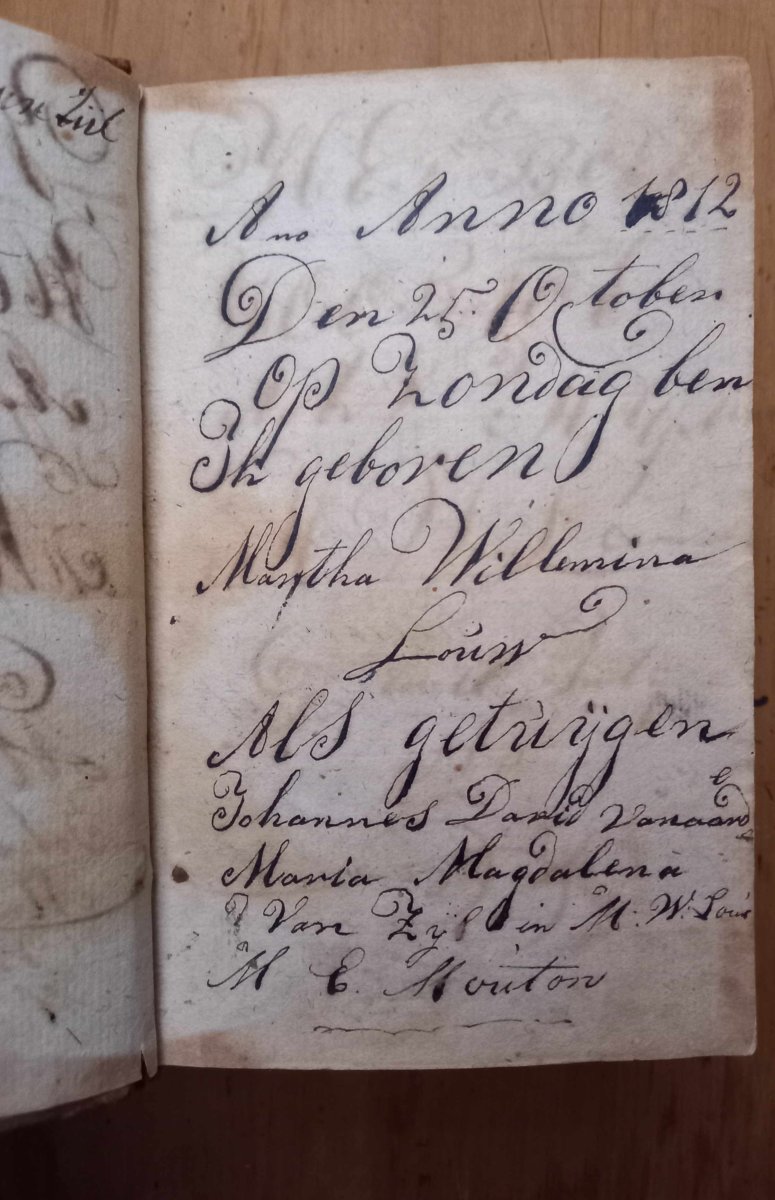 von Zÿl
Ano Anno 1812
Den 25 October
op Zondag ben
Ik geboren
Martha Willemina
Louw
Als getuÿgen
Johannes David Vanaarde
Maria Magdalena
Van Zÿl in M. W. Louw
M E. Mouton